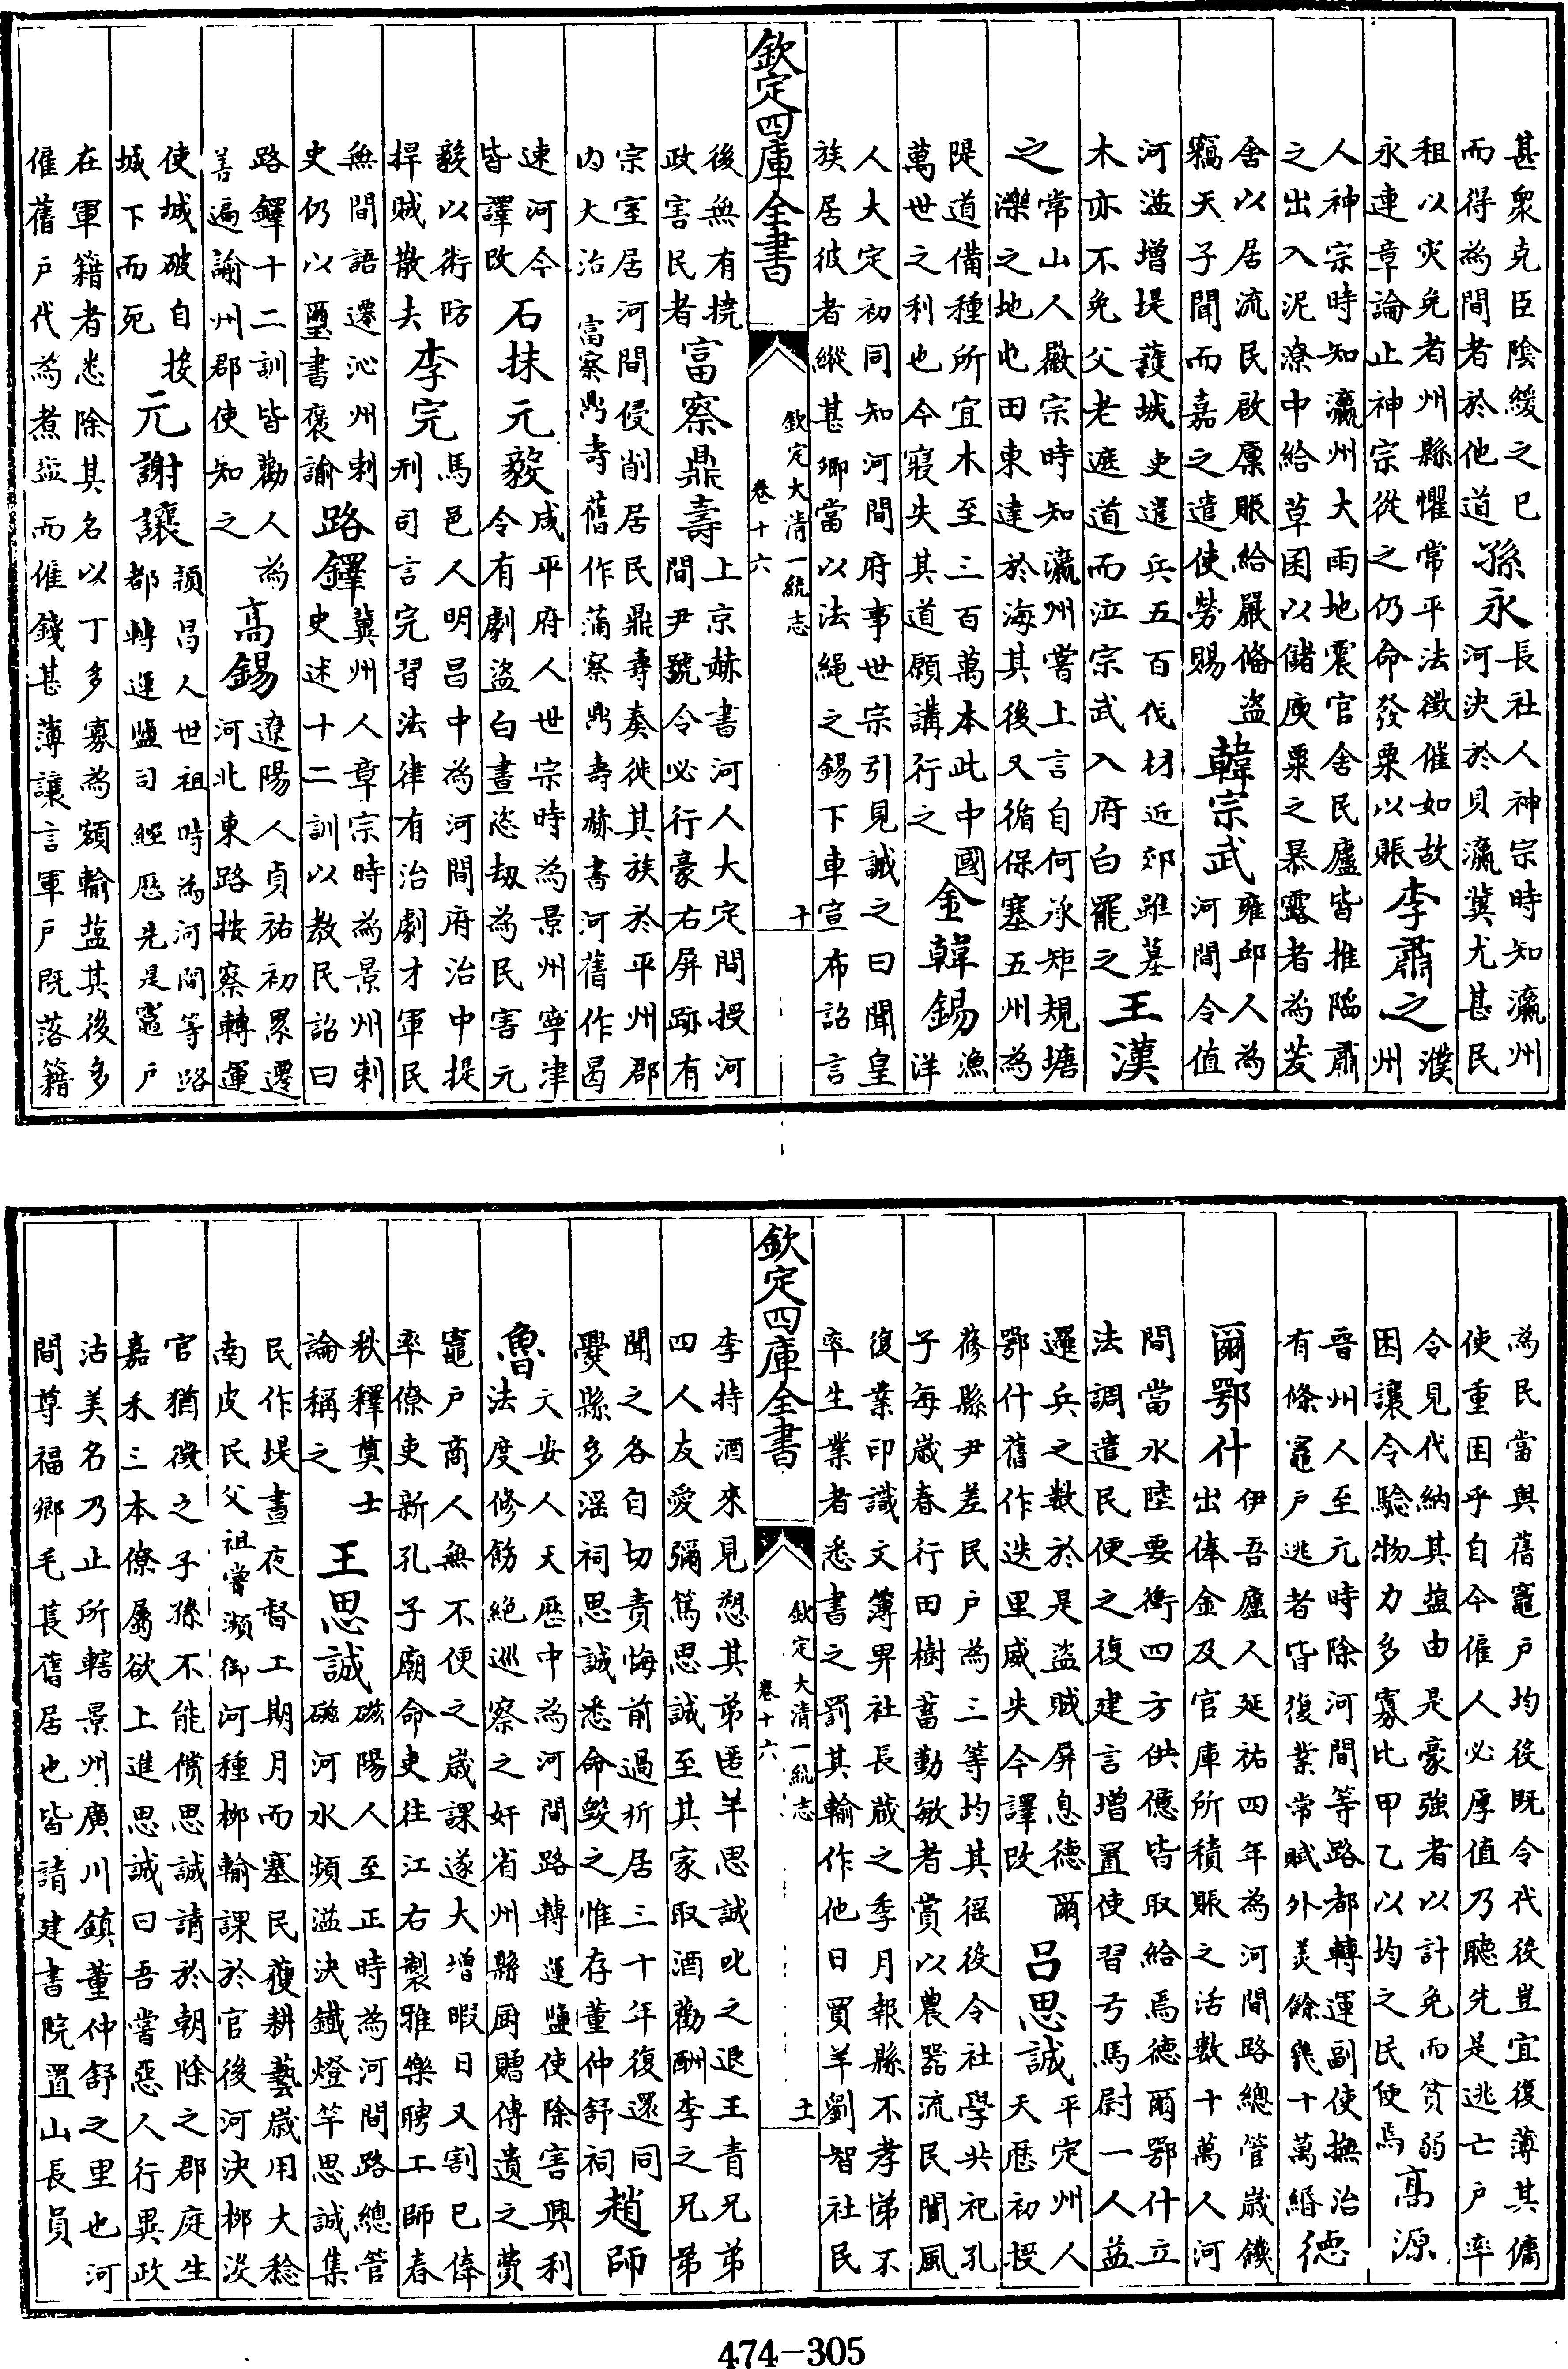 甚衆克臣陰緩之已
而得為間者於他道
孫永
長社人神宗時知瀛州
河決於貝瀛冀尤甚民
租以災免者州縣懼常平法徵催如故
永連章論止神宗從之仍命發粟以賑
李肅之
濮
州
人神宗時知瀛州大雨地震官舍民廬皆推陷肅
之出入泥潦中給草囷以儲庾粟之暴露者為茇
舍以居流民啟廩賑給嚴儆盜
竊天子聞而嘉之遣使勞賜
韓宗武
雍邱人為
河間令值
河溢增堤護城吏遣兵五百伐材近郊雖墓
木亦不免父老遮道而泣宗武入府白罷之
王漢
之
常山人徽宗時知瀛州嘗上言自何承矩規塘
濼之地屯田東達於海其後又循保塞五州為
隄道備種所宜木至三百萬本此中國
萬世之利也今寖失其道願講行之
金韓錫
漁
洋
人大定初同知河間府事世宗引見誡之曰聞皇
族居彼者縱甚卿當以法繩之錫下車宣布詔言
欽定四庫全書
欽定大清一統志
卷十六
十
後無有撓
政害民者
富察鼎壽
上京赫書河人大定間授河
間尹號令必行豪右屏跡有
宗室居河間侵削居民鼎壽奏徙其族於平州郡
内大治 富察鼎壽舊作蒲察鼎壽赫書河舊作曷
速河今
皆譯改
石抹元毅
咸平府人世宗時為景州寧津
令有劇盜白晝恣刼為民害元
毅以術防
捍賊散去
李完
馬邑人明昌中為河間府治中提
刑司言完習法律有治劇才軍民
無間語遷沁州刺
史仍以璽書褒諭
路鐸
冀州人章宗時為景州刺
史述十二訓以教民詔曰
路鐸十二訓皆勸人為
善遍諭州郡使知之
高錫
遼陽人貞祐初累遷
河北東路按察轉運
使城破自投
城下而死
元謝讓
頴昌人世祖時為河間等路
都轉運鹽司經歷先是竈戶
在軍籍者悉除其名以丁多寡為額輸盐其後多
僱舊戶代為煮盐而僱錢甚薄讓言軍戶既落籍
為民當與舊竈戶均役既令代役豈宜復薄其傭
使重困乎自今僱人必厚值乃聽先是逃亡戶率
令見代納其盐由是豪強者以計免而貧弱
困讓令驗物力多寡比甲乙以均之民便焉
高源
晉州人至元時除河間等路都轉運副使撫治
有條竈戶逃者皆復業常賦外羡餘幾十萬緡
德
爾鄂什
伊吾廬人延祐四年為河間路總管歲饑
出俸金及官庫所積賑之活數十萬人河
間當水陸要衝四方供億皆取給焉德爾鄂什立
法調遣民便之復建言增置使習弓馬尉一人益
邏兵之數於是盜賊屏息德爾
鄂什舊作迭里威失今譯改
呂思誠
平定州人
天歷初授
蓨縣尹差民戶為三等均其徭役令社學共祀孔
子每歲春行田樹蓄勤敏者賞以農器流民聞風
復業印識文簿畀社長歲之季月報縣不孝悌不
率生業者悉書之罰其輸作他日買羊劉智社民
欽定四庫全書
欽定大清一統志
卷十六
十一
李持酒來見愬其弟匿羊思誠叱之退王青兄弟
四人友愛彌篤思誠至其家取酒勸酬李之兄弟
聞之各自切責悔前過析居三十年復還同
爨縣多淫祠思誠悉命毀之惟存董仲舒祠
趙師
魯
文安人天歷中為河間路轉運鹽使除害興利
法度修飭絶巡察之奸省州縣厨贈傳遺之費
竈戶商人無不便之歲課遂大增暇日又割已俸
率僚吏新孔子廟命吏往江右製雅樂聘工師春
秋釋奠士
論稱之
王思誠
磁陽人至正時為河間路總管
磁河水頻溢決鐵燈竿思誠集
民作堤晝夜督工期月而塞民獲耕藝歲用大稔
南皮民父祖嘗瀕御河種柳輸課於官後河決柳沒
官猶徵之子孫不能償思誠請於朝除之郡庭生
嘉禾三本僚屬欲上進思誠曰吾嘗惡人行異政
沽美名乃止所轄景州廣川鎮董仲舒之里也河
間尊福鄉毛萇舊居也皆請建書院置山長員
474-305